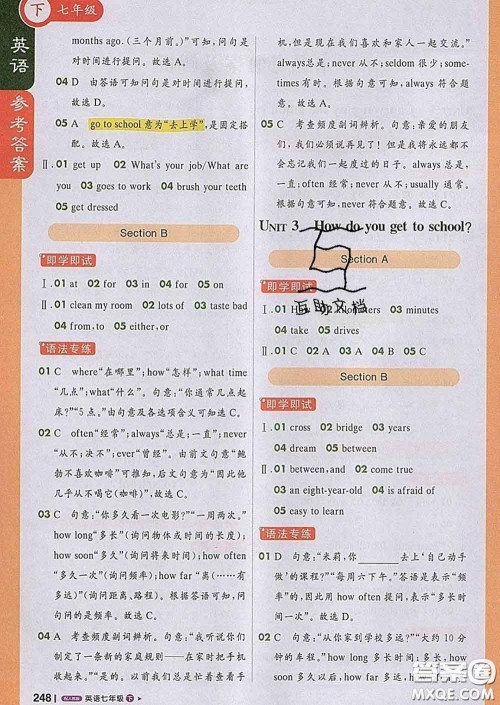 下 七年级
英语
参考答案
months ago. (三个月前。)”可知，问句是
对时间进行提问。故选 A。
04 D 由答语可知问句是对时间进行提问，
故选 D。
05 A go to school 意为“去上学”，是固定搭
配。故选 A。
Ⅱ. 01 get up 02 What's your job/What are
you 03 goes to work 04 brush your teeth
05 get dressed
Section B
即学即试
Ⅰ. 01 at 02 for 03 in 04 for 05 on
Ⅱ. 01 clean my room 02 lots of 03 taste bad
04 from, to 05 either, or
语法专练
01 C where“在哪里”；how“怎样”；what time
“几点”；what“什么”。句意：“你通常几点起
床？”“5 点。”由句意及各选项意思可知选 C。
02 C often“经常”；always“总是；一直”；never
“从不；决不”；ever“曾经”。由前文句意“鲍
勃不喜欢咖啡”可推知，后文句意为“因此他
几乎从不喝它(咖啡)”，故选 C。
03 C 句意：“你多久看一次电影？”“一周两次。”
how long“多长”(询问物体或时间的长度)；
how soon“多久”(询问将来时间)；how often
“多久一次”(询问频率)；how far“(离……有
多远)”(询问距离、路程)。根据答语可知，问
句询问频率，故选 C。
04 A 考查频度副词辨析。句意：“你为你们
制定了一条新的家庭规则——在家时把手机
收起来。”“是的，我们总是过于经常查看手
248 英语七年级 下
机，但是现在我们喜欢和家人一起交谈。”
always 总是；never 从不；seldom 很少；some-
times 有时。由句意可知，always 符合题
意。故选 A。
05 C 考查频度副词辨析。句意：亲爱的朋友
们，我们必须说再见了！但是我将永远都不
会忘记我们一起度过的日子。always 总是，
一直；often 经常；never 从不；usually 通常。
根据句意可知，never 符合题意。故选 C。
UNIT 3 How do you get to school?
Section A
即学即试
Ⅰ. 01 How 02 kilometers 03 minutes
04 take 05 drives
互助文档
Ⅱ. 01 C 02 D 03 C 04 B 05 C
Section B
即学即试
Ⅰ. 01 cross 02 bridge 03 years
04 dream 05 between
Ⅱ. 01 between, and 02 come true
03 an eight-year-old 04 is afraid of
05 easy to learn
语法专练
01 D 句意：“米莉，你______去上‘自己动手
做’的课程？”“每周六下午。”答语是表示“频
率”的，因此用 how often 提问，表示“多久一
次”，故选 D。
02 C 句意：“从你家到学校多远？”“大约 10 分
钟的车
答案圈
MXQE.COM